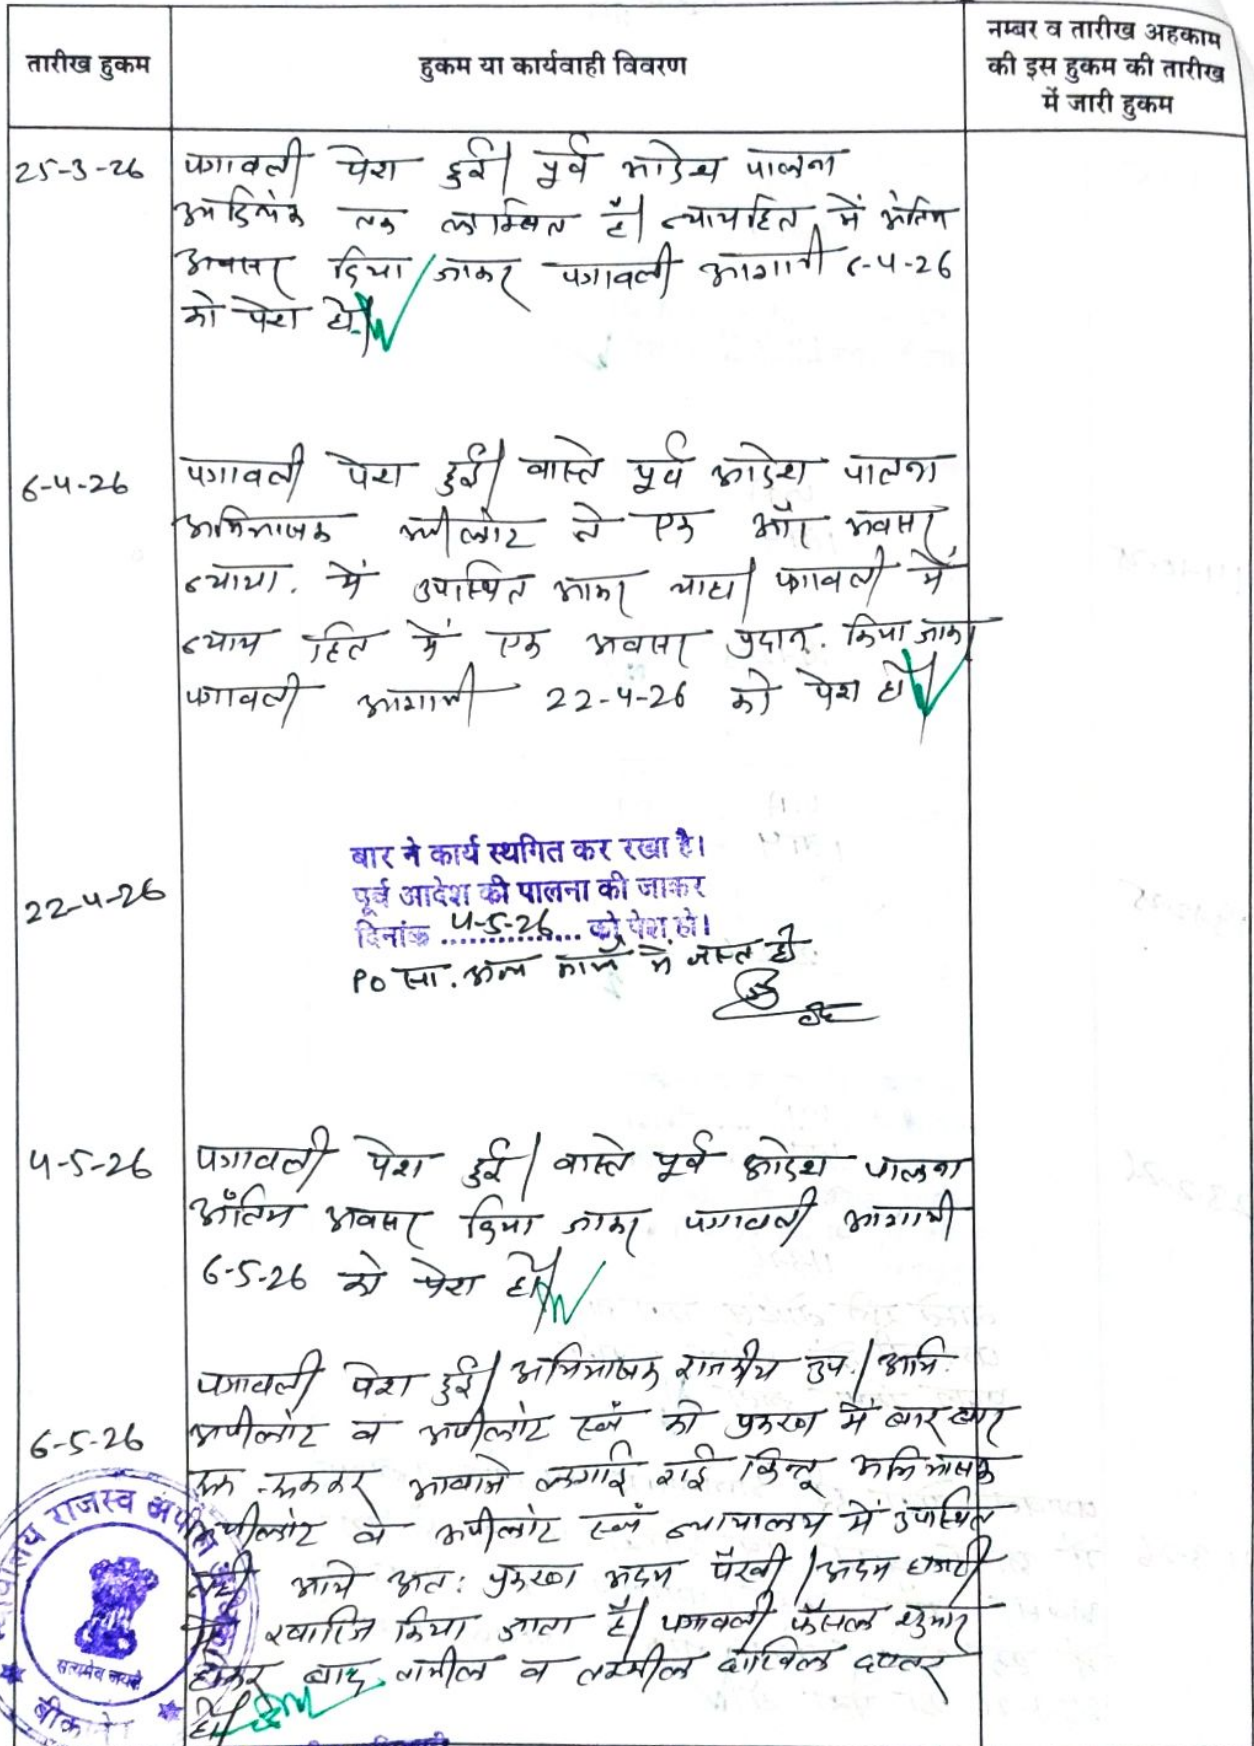 तारीख हुकम
हुकम या कार्यवाही विवरण
नम्बर व तारीख अहकाम
की इस हुकम की तारीख
में जारी हुकम
25-3-26
पत्रावली पेश हुई। पूर्व आदेश पालना
तक लम्बित है। न्यायहित में अंतिम
अवसर दिया जाकर पत्रावली आगामी 6-4-26
को पेश हो।
6-4-26
पत्रावली पेश हुई। वास्ते पूर्व आदेश पालना
अभिभाषक अपीलांट ने एक और अवसर
न्याया. में उपस्थित आकर चाहा। पत्रावली में
न्याय हित में एक अवसर प्रदान. किया जाकर
पत्रावली आगामी 22-4-26 को पेश हो।
22-4-26
बार ने कार्य स्थगित कर रखा है।
पूर्व आदेश की पालना की जाकर
दिनांक 4-5-26 को पेश हो।
PO सा. अन्य कार्य में व्यस्त है
4-5-26
पत्रावली पेश हुई। वास्ते पूर्व आदेश पालना
अंतिम अवसर दिया जाकर पत्रावली आगामी
6-5-26 को पेश हो।
6-5-26
पत्रावली पेश हुई। अभिभाषक राजकीय उप.। अभि.
अपीलांट व अपीलांट स्वयं को प्रकरण में बार बार
रूक-रूककर आवाजे लगाई गई किन्तू अभिभाषक
अपीलांट व अपीलांट स्वयं न्यायालय में उपस्थित
नही आये अत: प्रकरण अदम पैरवी / अदम हाजरी
में खारिज किया जाता है। पत्रावली फैसल शुमार
होकर बाद तामील व तकमील दाखिल दफ्तर
हो।
न्यायालय राजस्व अपील
सत्यमेव जयते
बीकानेर